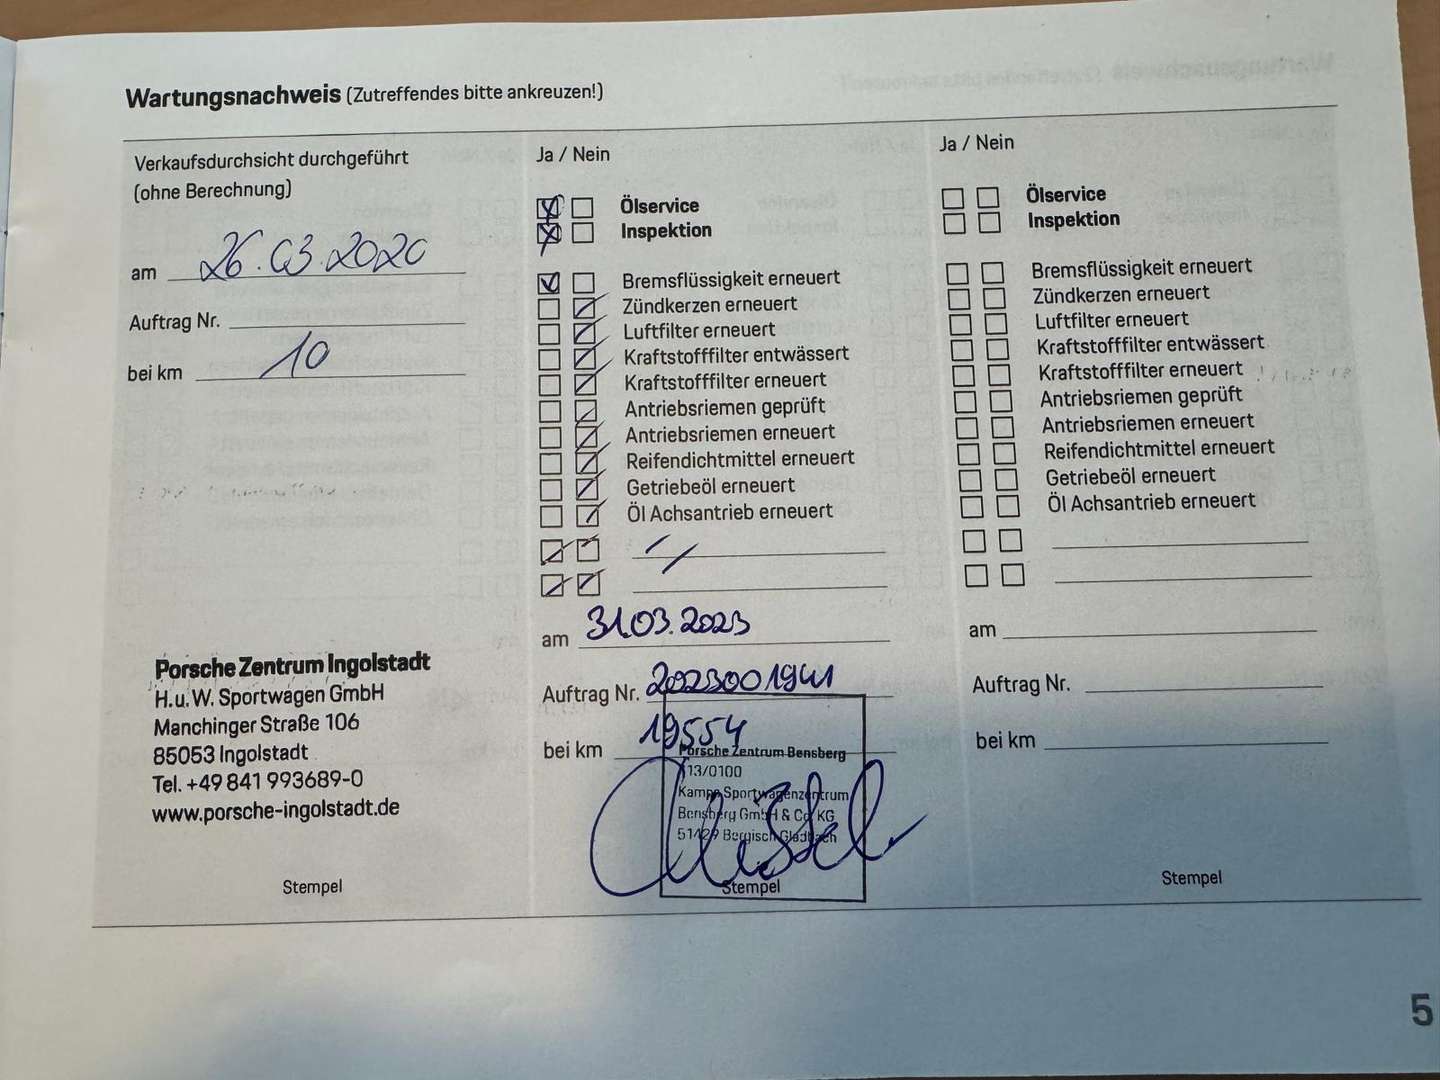 Wartungsnachweis (Zutreffendes bitte ankreuzen!)
Verkaufsdurchsicht durchgeführt
(ohne Berechnung)
am 26.03.2020
Auftrag Nr.
bei km 10
Porsche Zentrum Ingolstadt
H.u.W. Sportwagen GmbH
Manchinger Straße 106
85053 Ingolstadt
Tel. +49 841 993689-0
www.porsche-ingolstadt.de
Stempel
Ja / Nein
Ölservice
Inspektion
Bremsflüssigkeit erneuert
Zündkerzen erneuert
Luftfilter erneuert
Kraftstofffilter entwässert
Kraftstofffilter erneuert
Antriebsriemen geprüft
Antriebsriemen erneuert
Reifendichtmittel erneuert
Getriebeöl erneuert
Öl Achsantrieb erneuert
am 31.03.2023
Auftrag Nr. 2023001941
bei km 19554
Porsche Zentrum Bensberg
13/0100
Kamps Sportwagenzentrum
Bensberg GmbH & Co KG
51429 Bergisch Gladbach
Stempel
Ja / Nein
Ölservice
Inspektion
Bremsflüssigkeit erneuert
Zündkerzen erneuert
Luftfilter erneuert
Kraftstofffilter entwässert
Kraftstofffilter erneuert
Antriebsriemen geprüft
Antriebsriemen erneuert
Reifendichtmittel erneuert
Getriebeöl erneuert
Öl Achsantrieb erneuert
am
Auftrag Nr.
bei km
Stempel
5